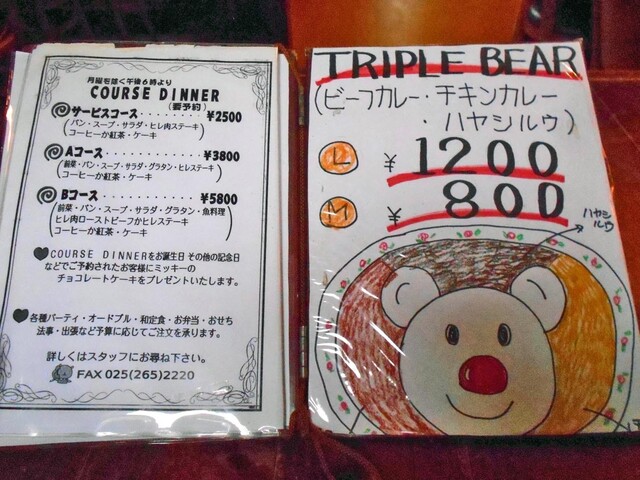 月曜を除く午後6時より
COURSE DINNER
(要予約)
サービスコース・・・・・・・・・¥2500
(パン・スープ・サラダ・ヒレ肉ステーキ
コーヒーか紅茶・ケーキ)
Aコース・・・・・・・・・・・¥3800
(前菜・パン・スープ・サラダ・グラタン・ヒレステーキ
コーヒーか紅茶・ケーキ)
Bコース・・・・・・・・・・・¥5800
(前菜・パン・スープ・サラダ・グラタン・魚料理
ヒレ肉ローストビーフかヒレステーキ
コーヒーか紅茶・ケーキ)
COURSE DINNERをお誕生日 その他の記念日
などでご予約されたお客様にミッキーの
チョコレートケーキをプレゼントいたします。
各種パーティ・オードブル・和定食・お弁当・おせち
法事・出張など予算に応じてご注文を承ります。
詳しくはスタッフにお尋ね下さい。
FAX 025(265)2220
TRIPLE BEAR
(ビーフカレー・チキンカレー
・ハヤシルゥ)
L ¥1200
M ¥800
ハヤシ
ルゥ